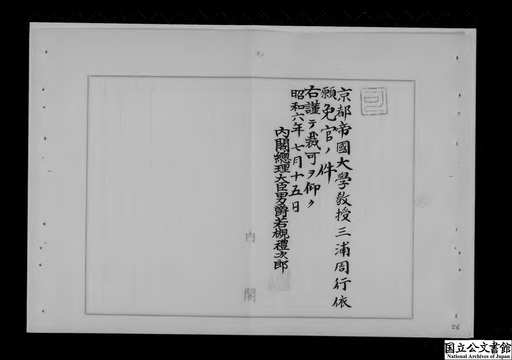 可
京都帝國大學教授三浦周行依
願免官ノ件
右謹テ裁可ヲ仰ク
昭和六年七月十五日
內閣總理大臣男爵若槻禮次郎
內閣
56
国立公文書館
National Archives of Japan